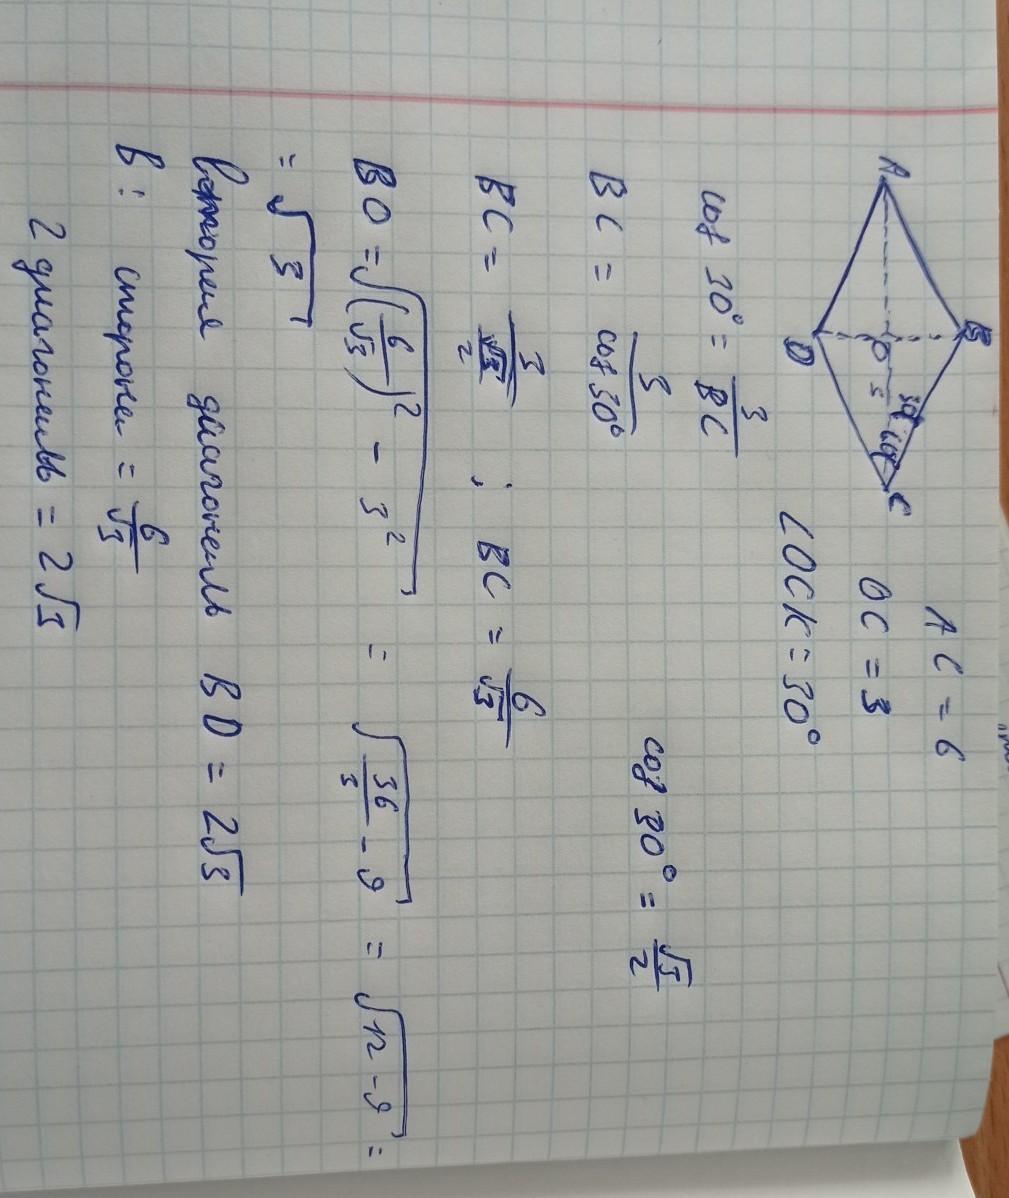 A B C D O 3 30° 60°
AC = 6
OC = 3
∠OCK = 30°
cos 30° = 3/BC
cos 30° = √3/2
BC = 3/cos 30°
BC = 3/(√3/2) ; BC = 6/√3
BO = √((6/√3)² - 3²) = √(36/3 - 9) = √(12 - 9) =
= √3
Вторая диагональ BD = 2√3
В: сторона = 6/√3
2 диагональ = 2√3